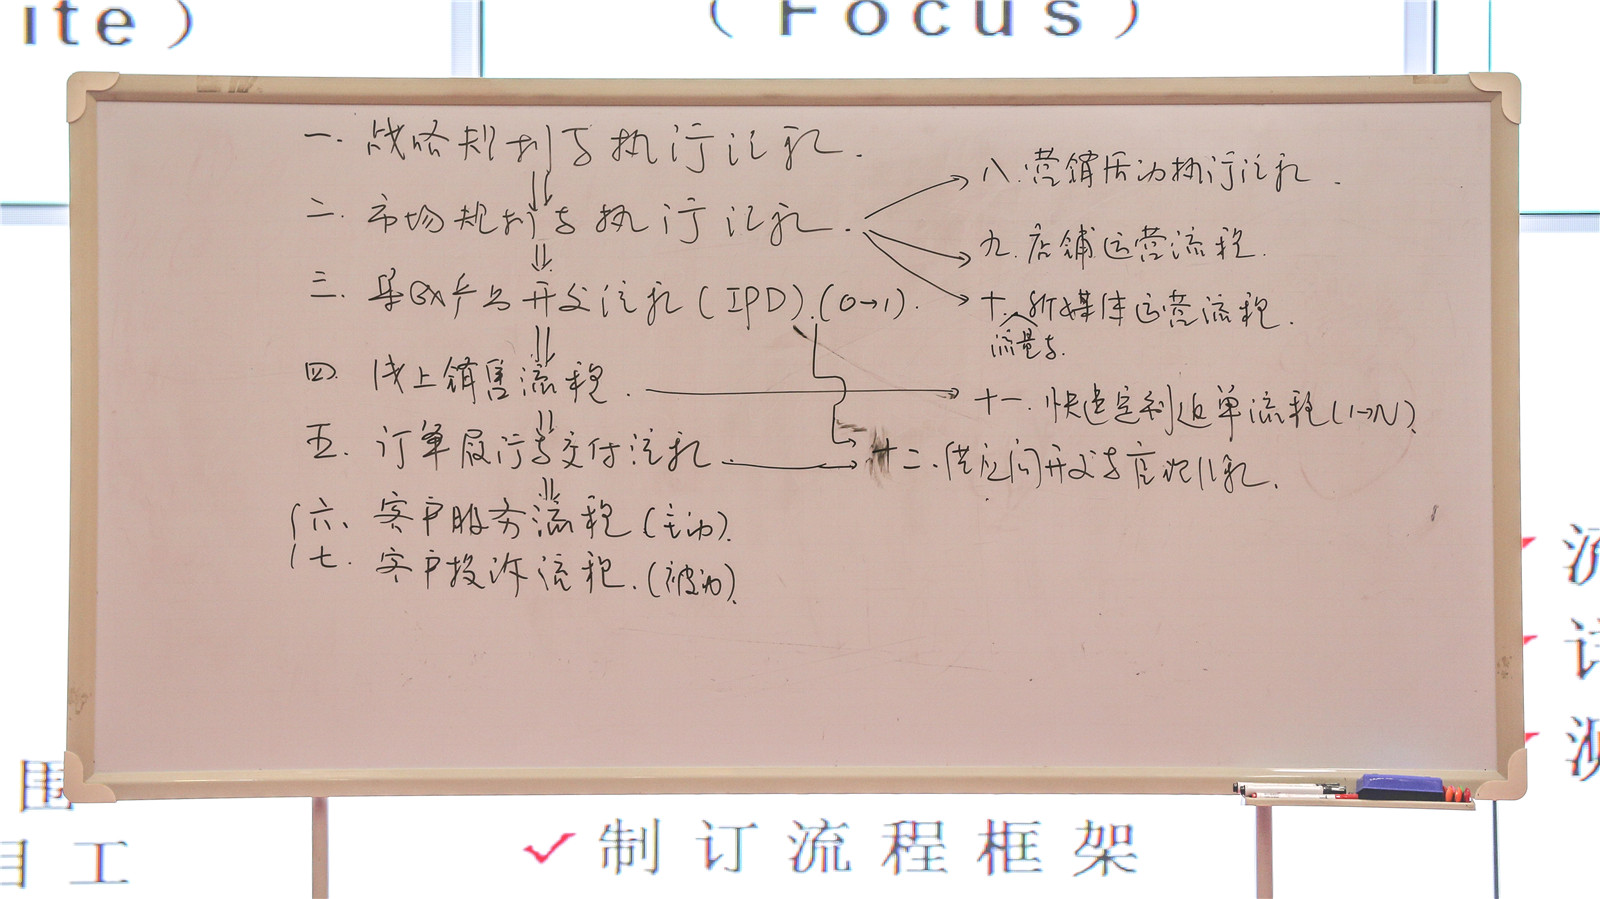 ite）
（Focus）
一. 战略规划与执行流程.
二. 市场规划与执行流程.
三. 集成产品开发流程(IPD).(0→1).
四. 线上销售流程.
五. 订单履行与交付流程.
六、客户服务流程(主动).
七. 客户投诉流程.(被动).
八.营销活动执行流程.
九.店铺运营流程.
十.新媒体运营流程.
流量与.
十一.快速定制返单流程(1→N).
十二.供应商开发与管理流程.
流
测
围
目工
制订流程框架